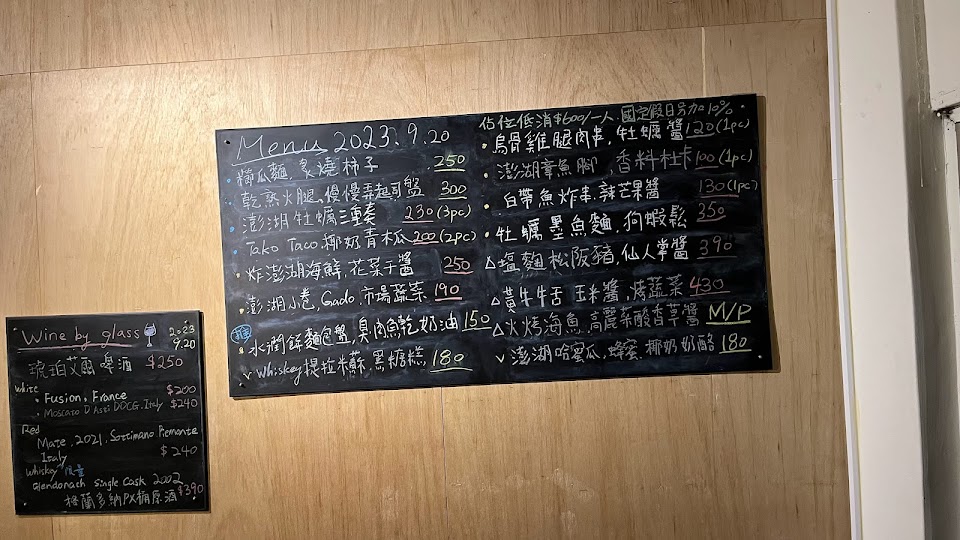 Menu 2023.9.20
精瓜麵,炙燒柿子 250
乾熟火腿,慢慢弄起司盤 300
澎湖牡蠣三重奏 230(3pc)
Tako Taco.椰奶青木瓜 200(2pc)
炸澎湖海鮮,花菜干醬 250
澎湖小卷,Gado,市場蔬菜 190
水潤餅麵包盤,臭肉魚乾奶油 150
Whiskey提拉米蘇,黑糖糕 180
佔位低消$600/一人.國定假日另加10%
烏骨雞腿肉串,牡蠣醬 120(1pc)
澎湖章魚腳,香料杜卡 100(1pc)
白帶魚炸串.辣芒果醬 130(1pc)
牡蠣墨魚麵,狗蝦鬆 350
塩麴松阪豬,仙人掌醬 390
黃牛牛舌 玉米醬,烤蔬菜 430
火烤海魚,高麗菜酸香草醬 M/P
澎湖哈蜜瓜,蜂蜜,椰奶奶酪 180
Wine by glass 2023 9.20
琥珀艾爾啤酒 $250
White
Fusion, France $200
Moscato D'Asti DOCG.Italy $240
Red
Mate, 2021, Sottimano Piemonte
Italy $240
Whiskey 限量
Glendronach Single Cask 2002
格蘭多納PX桶原酒 $390